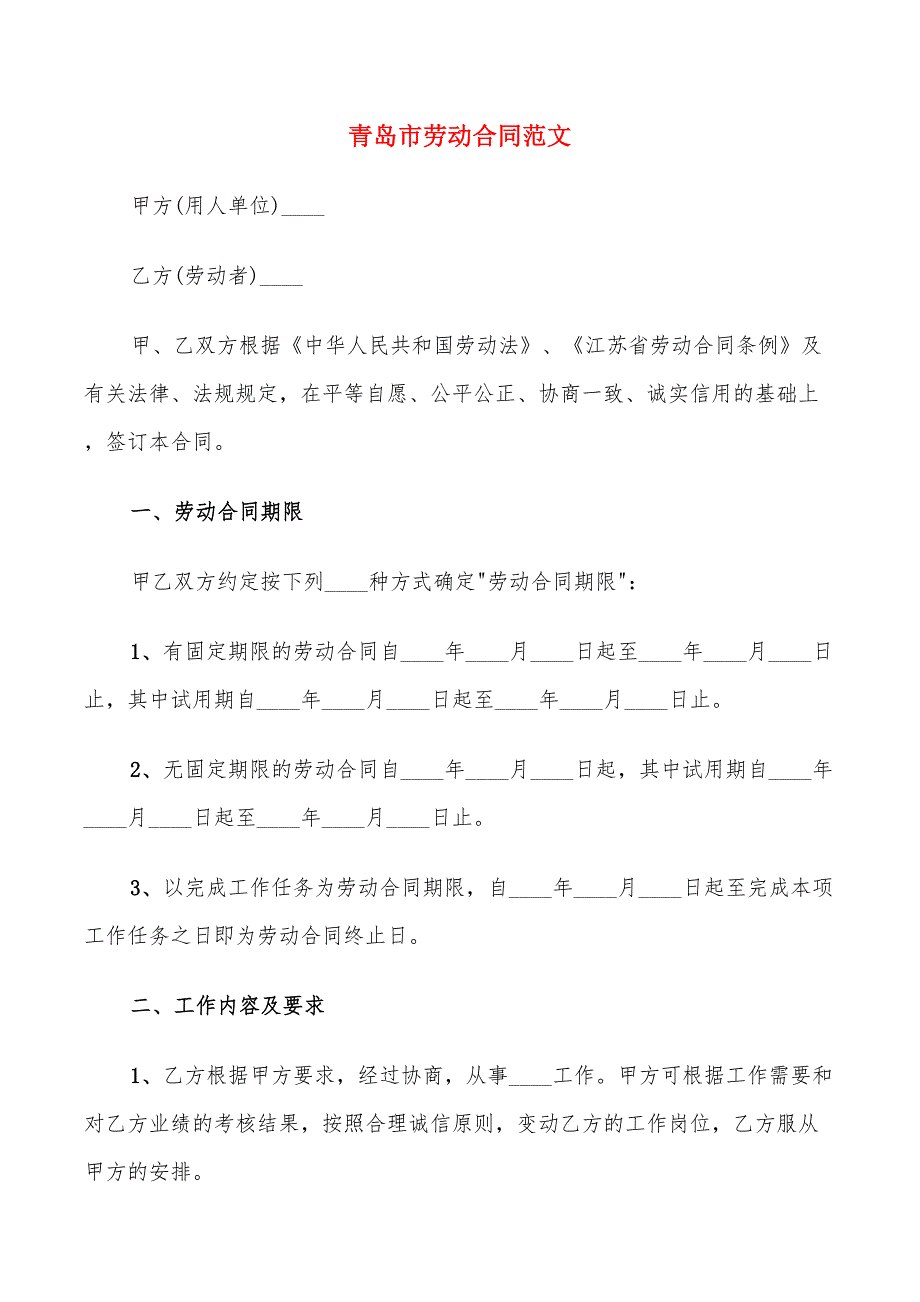 青岛市劳动合同范文
甲方(用人单位)____
乙方(劳动者)____
甲、乙双方根据《中华人民共和国劳动法》、《江苏省劳动合同条例》及
有关法律、法规规定，在平等自愿、公平公正、协商一致、诚实信用的基础上
，签订本合同。
一、劳动合同期限
甲乙双方约定按下列____种方式确定"劳动合同期限"：
1、有固定期限的劳动合同自____年____月____日起至____年____月____日
止，其中试用期自____年____月____日起至____年____月____日止。
2、无固定期限的劳动合同自____年____月____日起，其中试用期自____年
____月____日起至____年____月____日止。
3、以完成工作任务为劳动合同期限，自____年____月____日起至完成本项
工作任务之日即为劳动合同终止日。
二、工作内容及要求
1、乙方根据甲方要求，经过协商，从事____工作。甲方可根据工作需要和
对乙方业绩的考核结果，按照合理诚信原则，变动乙方的工作岗位，乙方服从
甲方的安排。